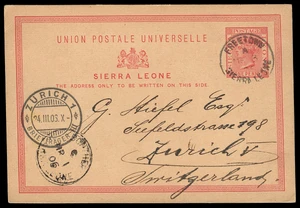 UNION POSTALE UNIVERSELLE
SIERRA LEONE
THE ADDRESS ONLY TO BE WRITTEN ON THIS SIDE
FREETOWN
SIERRA LEONE
ZÜRICH 1
G. Stiefel Esq
Seefeldstrasse 98
Zürich V
Switzerland.